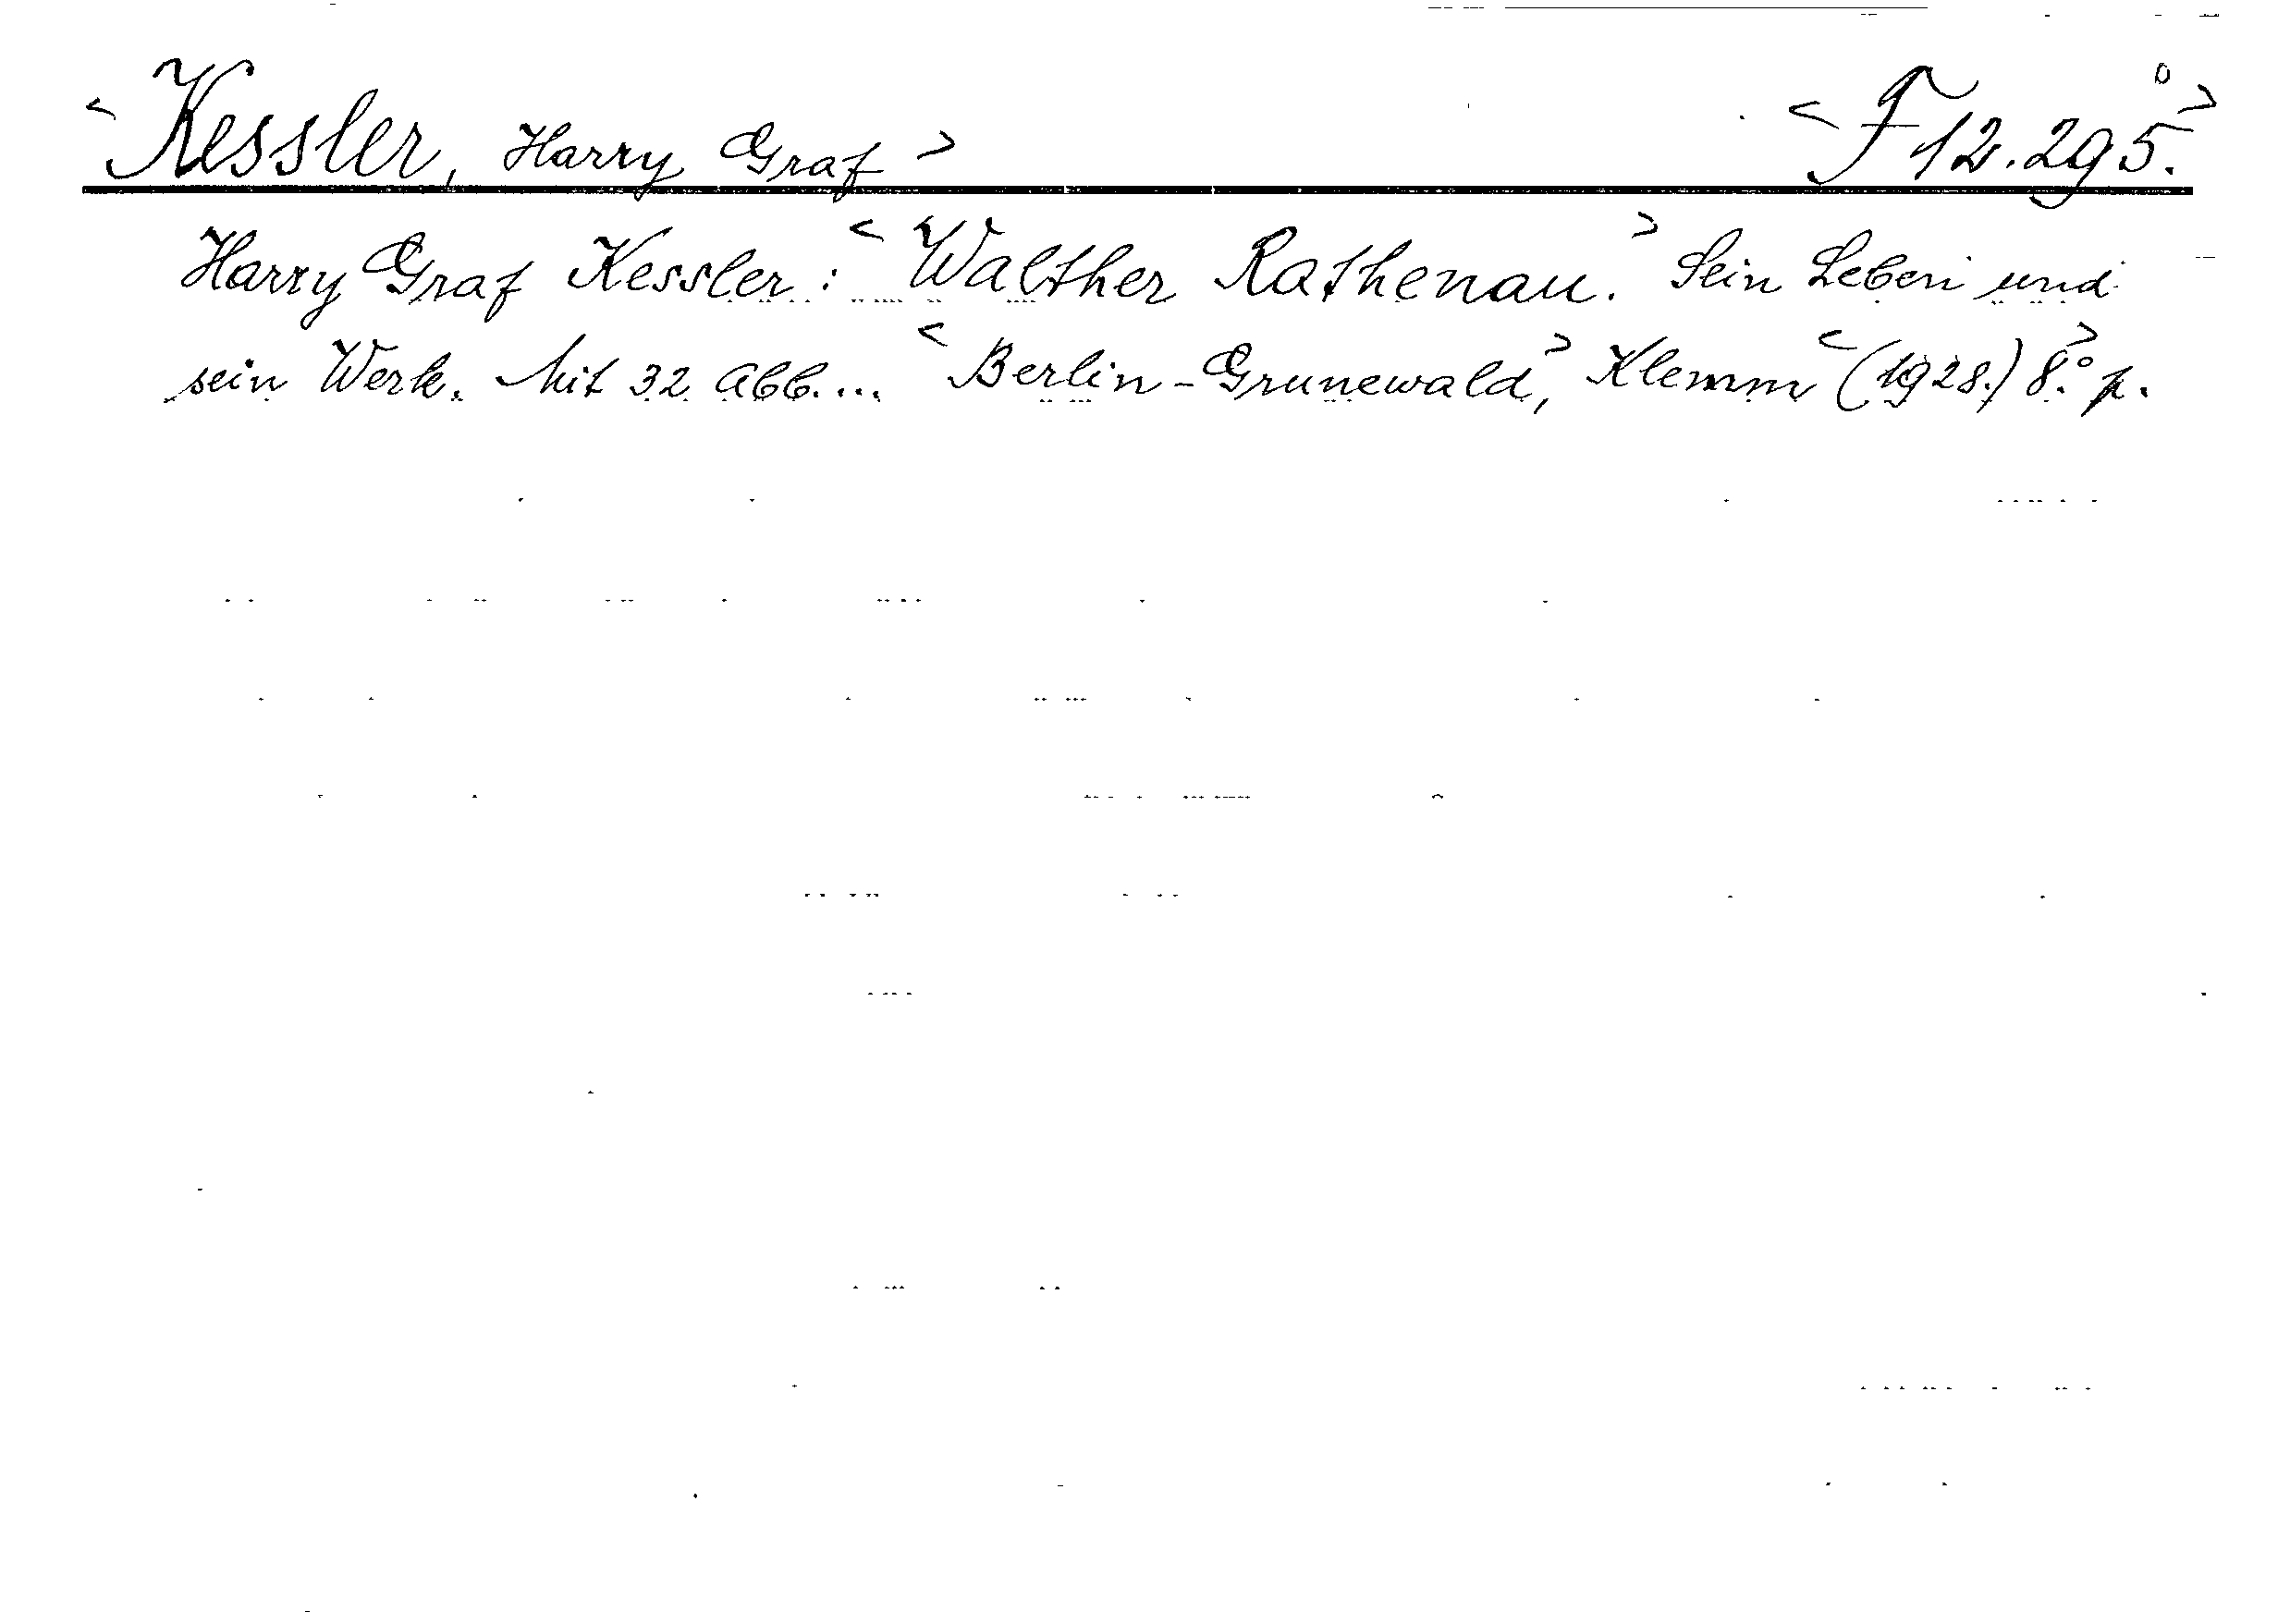 < Kessler, Harry Graf > < F 12.295. o >
Harry Graf Kessler: < Walther Rathenau. > Sein Leben und
sein Werk. Mit 32 Abb.... < Berlin-Grunewald, > Klemm < (1928.) > 8.° p.